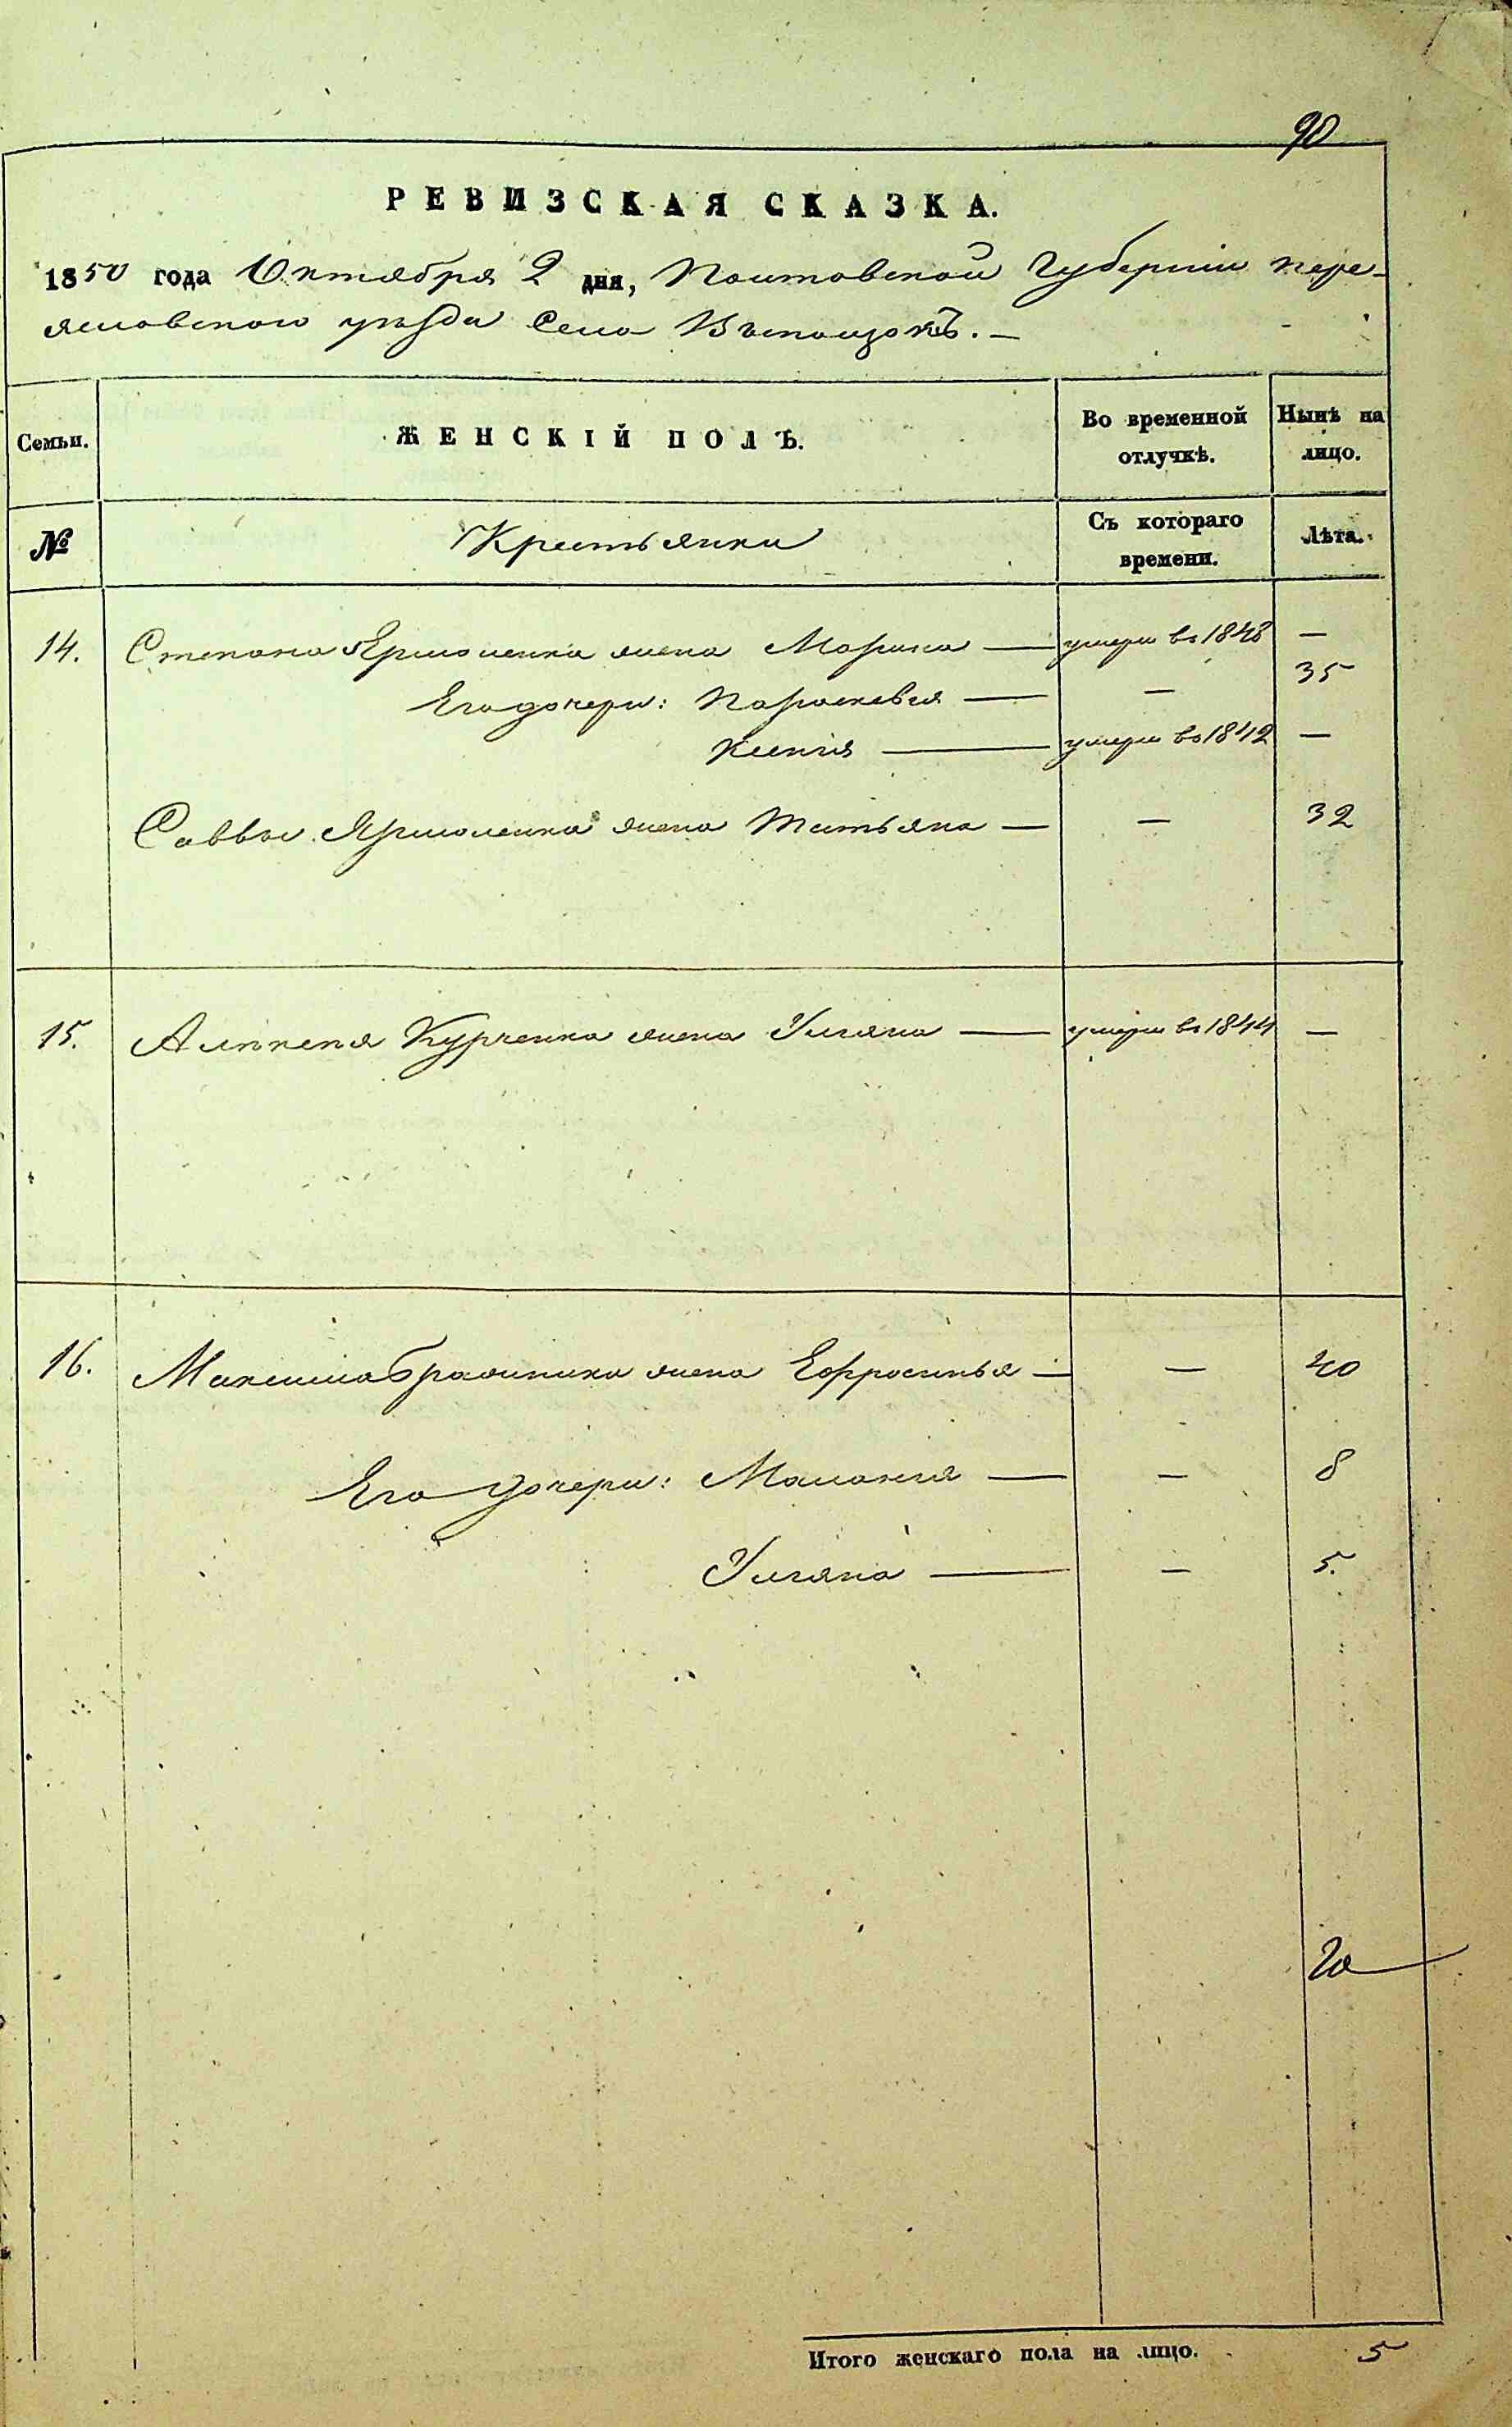 90
РЕВИЗСКАЯ СКАЗКА.
1850 года Октября 2 дня, Полтавской Губернии Пере-
яславского уѣзда Села
Семьи. ЖЕНСКІЙ ПОЛЪ. Во временной отлучкѣ. Нынѣ на лицо.
№ Крестьянки Съ котораго времени. Лѣта.
14. Степана Ярмоленка жена Марина — умерла въ 1848 —
Его дочери: Параскевія — — 35
Ксенія — умерла въ 1842 —
Саввы Ярмоленка жена Татьяна — — 32
15. Алексѣя Курченка жена Уліяна — умерла въ 1844 —
16. Максима Бражника жена Ефросинья — — 40
Его дочери: Маланія — — 8
Уліяна — — 5.
Итого женскаго пола на лицо. 5